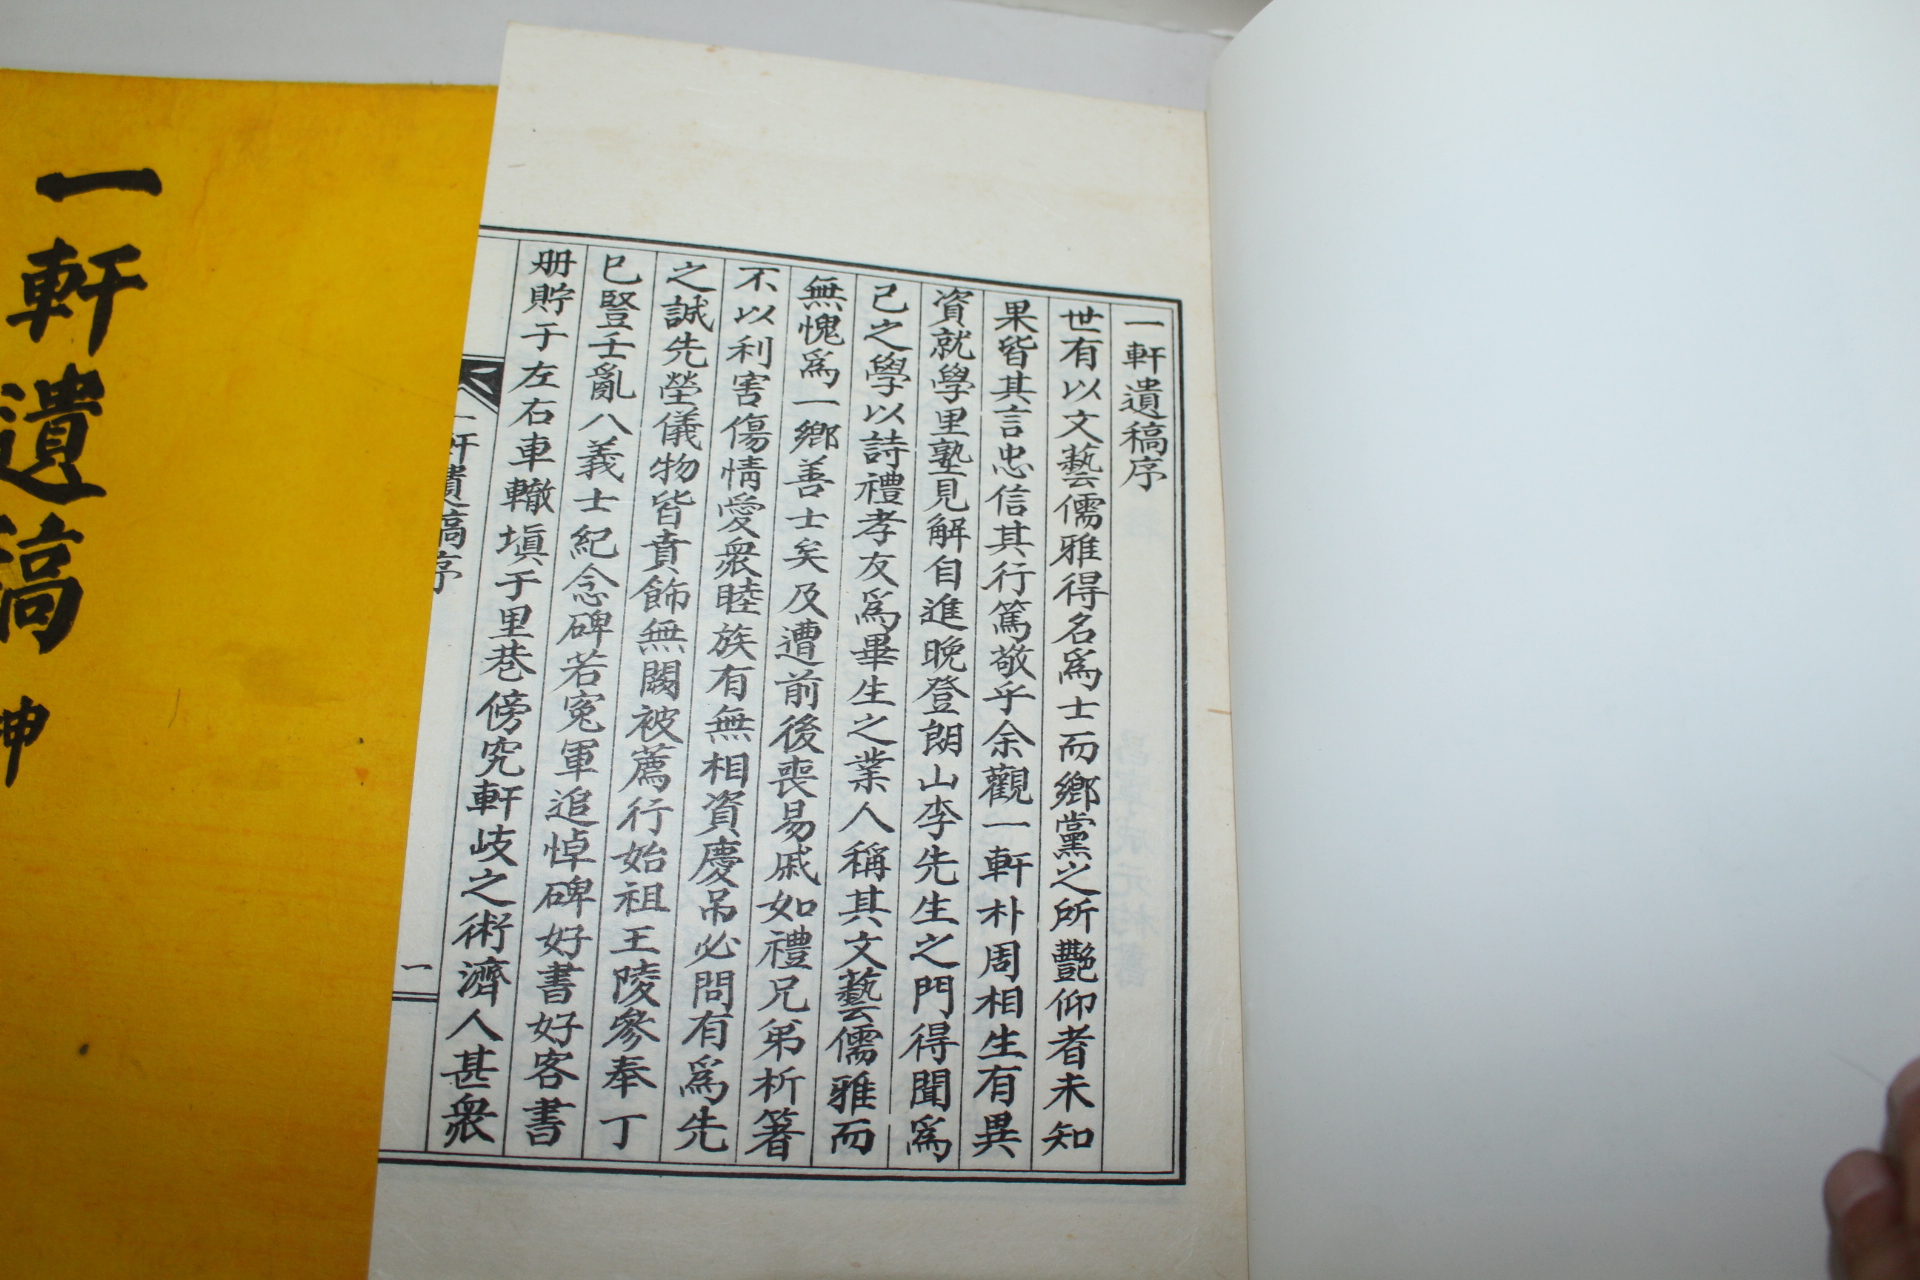 一軒遺稿序
世有以文藝儒雅得名爲士而鄉黨之所艷仰者未知
果皆其言忠信其行篤敬乎余觀一軒朴周相生有異
資就學里塾見解自進晩登朗山李先生之門得聞爲
己之學以詩禮孝友爲畢生之業人稱其文藝儒雅而
無愧爲一鄉善士矣及遭前後喪易戚如禮兄弟析箸
不以利害傷情愛衆睦族有無相資慶吊必問有爲先
之誠先塋儀物皆賁飾無闕被薦行始祖王陵參奉丁
巳豎壬亂八義士紀念碑若寃軍追悼碑好書好客書
册貯于左右車轍塡于里巷傍究軒岐之術濟人甚衆
一軒遺稿序
一
一軒遺稿 坤